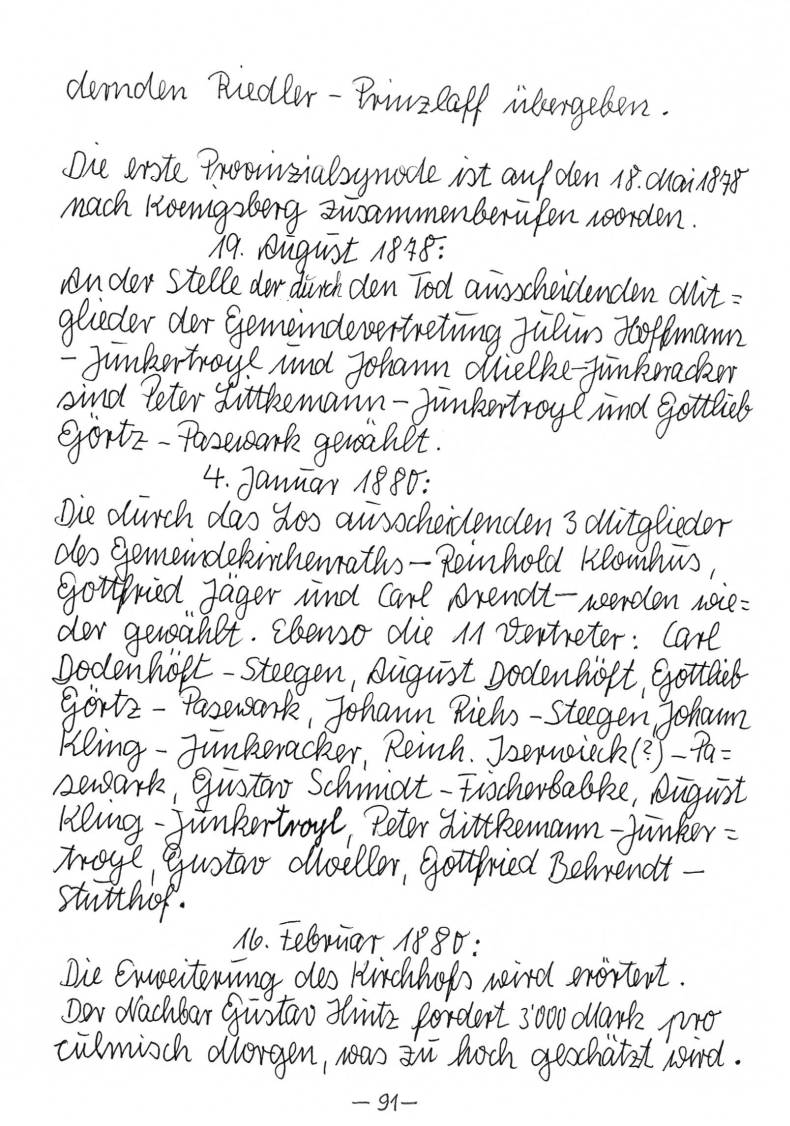 dernden Riedler - Prinzlaff übergeben.
Die erste Provinzialsynode ist auf den 18. Mai 1878
nach Koenigsberg zusammenberufen worden.
19. August 1878:
An der Stelle der durch den Tod ausscheidenden Mit=
glieder der Gemeindevertretung Julius Hoffmann
- Junkertroyl und Johann Mielke-Junkeracker
sind Peter Littkemann - Junkertroyl und Gottlieb
Görtz - Pasewark gewählt.
4. Januar 1880:
Die durch das Los ausscheidenden 3 Mitglieder
des Gemeindekirchenraths - Reinhold Klomhus,
Gottfried Jäger und Carl Arendt - werden wie=
der gewählt. Ebenso die 11 Vertreter: Carl
Dodenhöft - Steegen, August Dodenhöft, Gottlieb
Görtz - Pasewark, Johann Riehs - Steegen, Johann
Kling - Junkeracker, Reinh. Iserwieck(?) - Pa=
sewark, Gustav Schmidt - Fischerbabke, August
Kling - Junkertroyl, Peter Littkemann - Junker=
troyl, Gustav Moeller, Gottfried Behrendt -
Stutthof.
16. Februar 1880:
Die Erweiterung des Kirchhofs wird erörtert.
Der Nachbar Gustav Hintz fordert 3'000 Mark pro
culmisch Morgen, was zu hoch geschätzt wird.
- 91 -